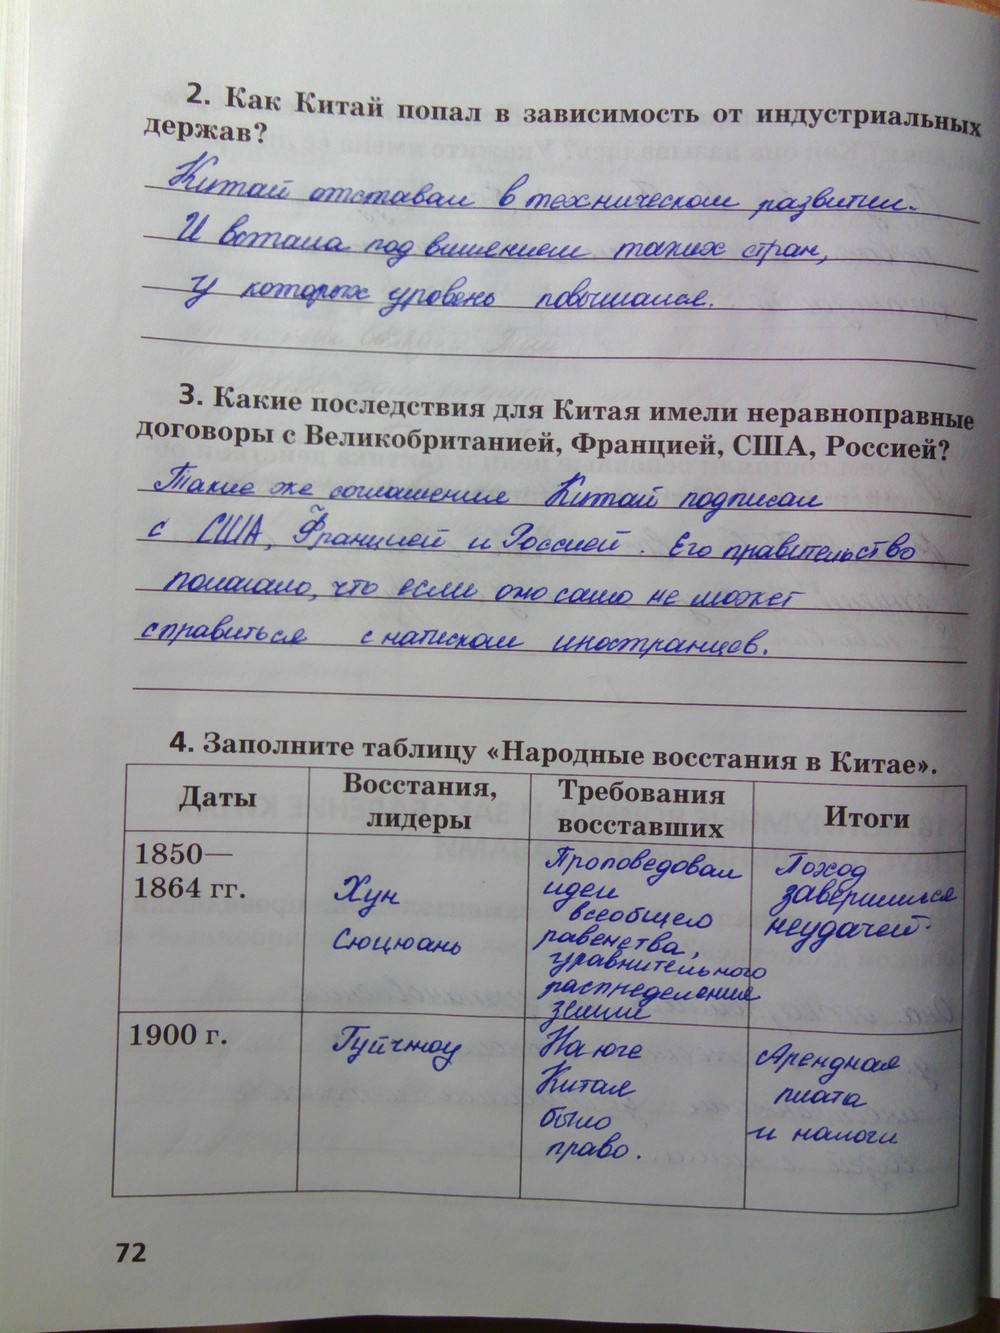 2. Как Китай попал в зависимость от индустриальных
держав?
Китай отставал в техническом развитии.
И встала под влиянием таких стран,
у которых уровень повышался.
3. Какие последствия для Китая имели неравноправные
договоры с Великобританией, Францией, США, Россией?
Такие же соглашения Китай подписал
с США, Францией и Россией. Его правительство
полагало, что если оно само не может
справиться с натиском иностранцев.
4. Заполните таблицу «Народные восстания в Китае».
Даты
Восстания,
лидеры
Требования
восставших
Итоги
1850—
1864 гг.
Хун
Сюцюань
Проповедовал
идеи
всеобщего
равенства,
уравнительного
распределения
земли
Поход
завершился
неудачей.
1900 г.
Гуйчжоу
На юге
Китая
было
право.
Арендная
плата
и налоги
72